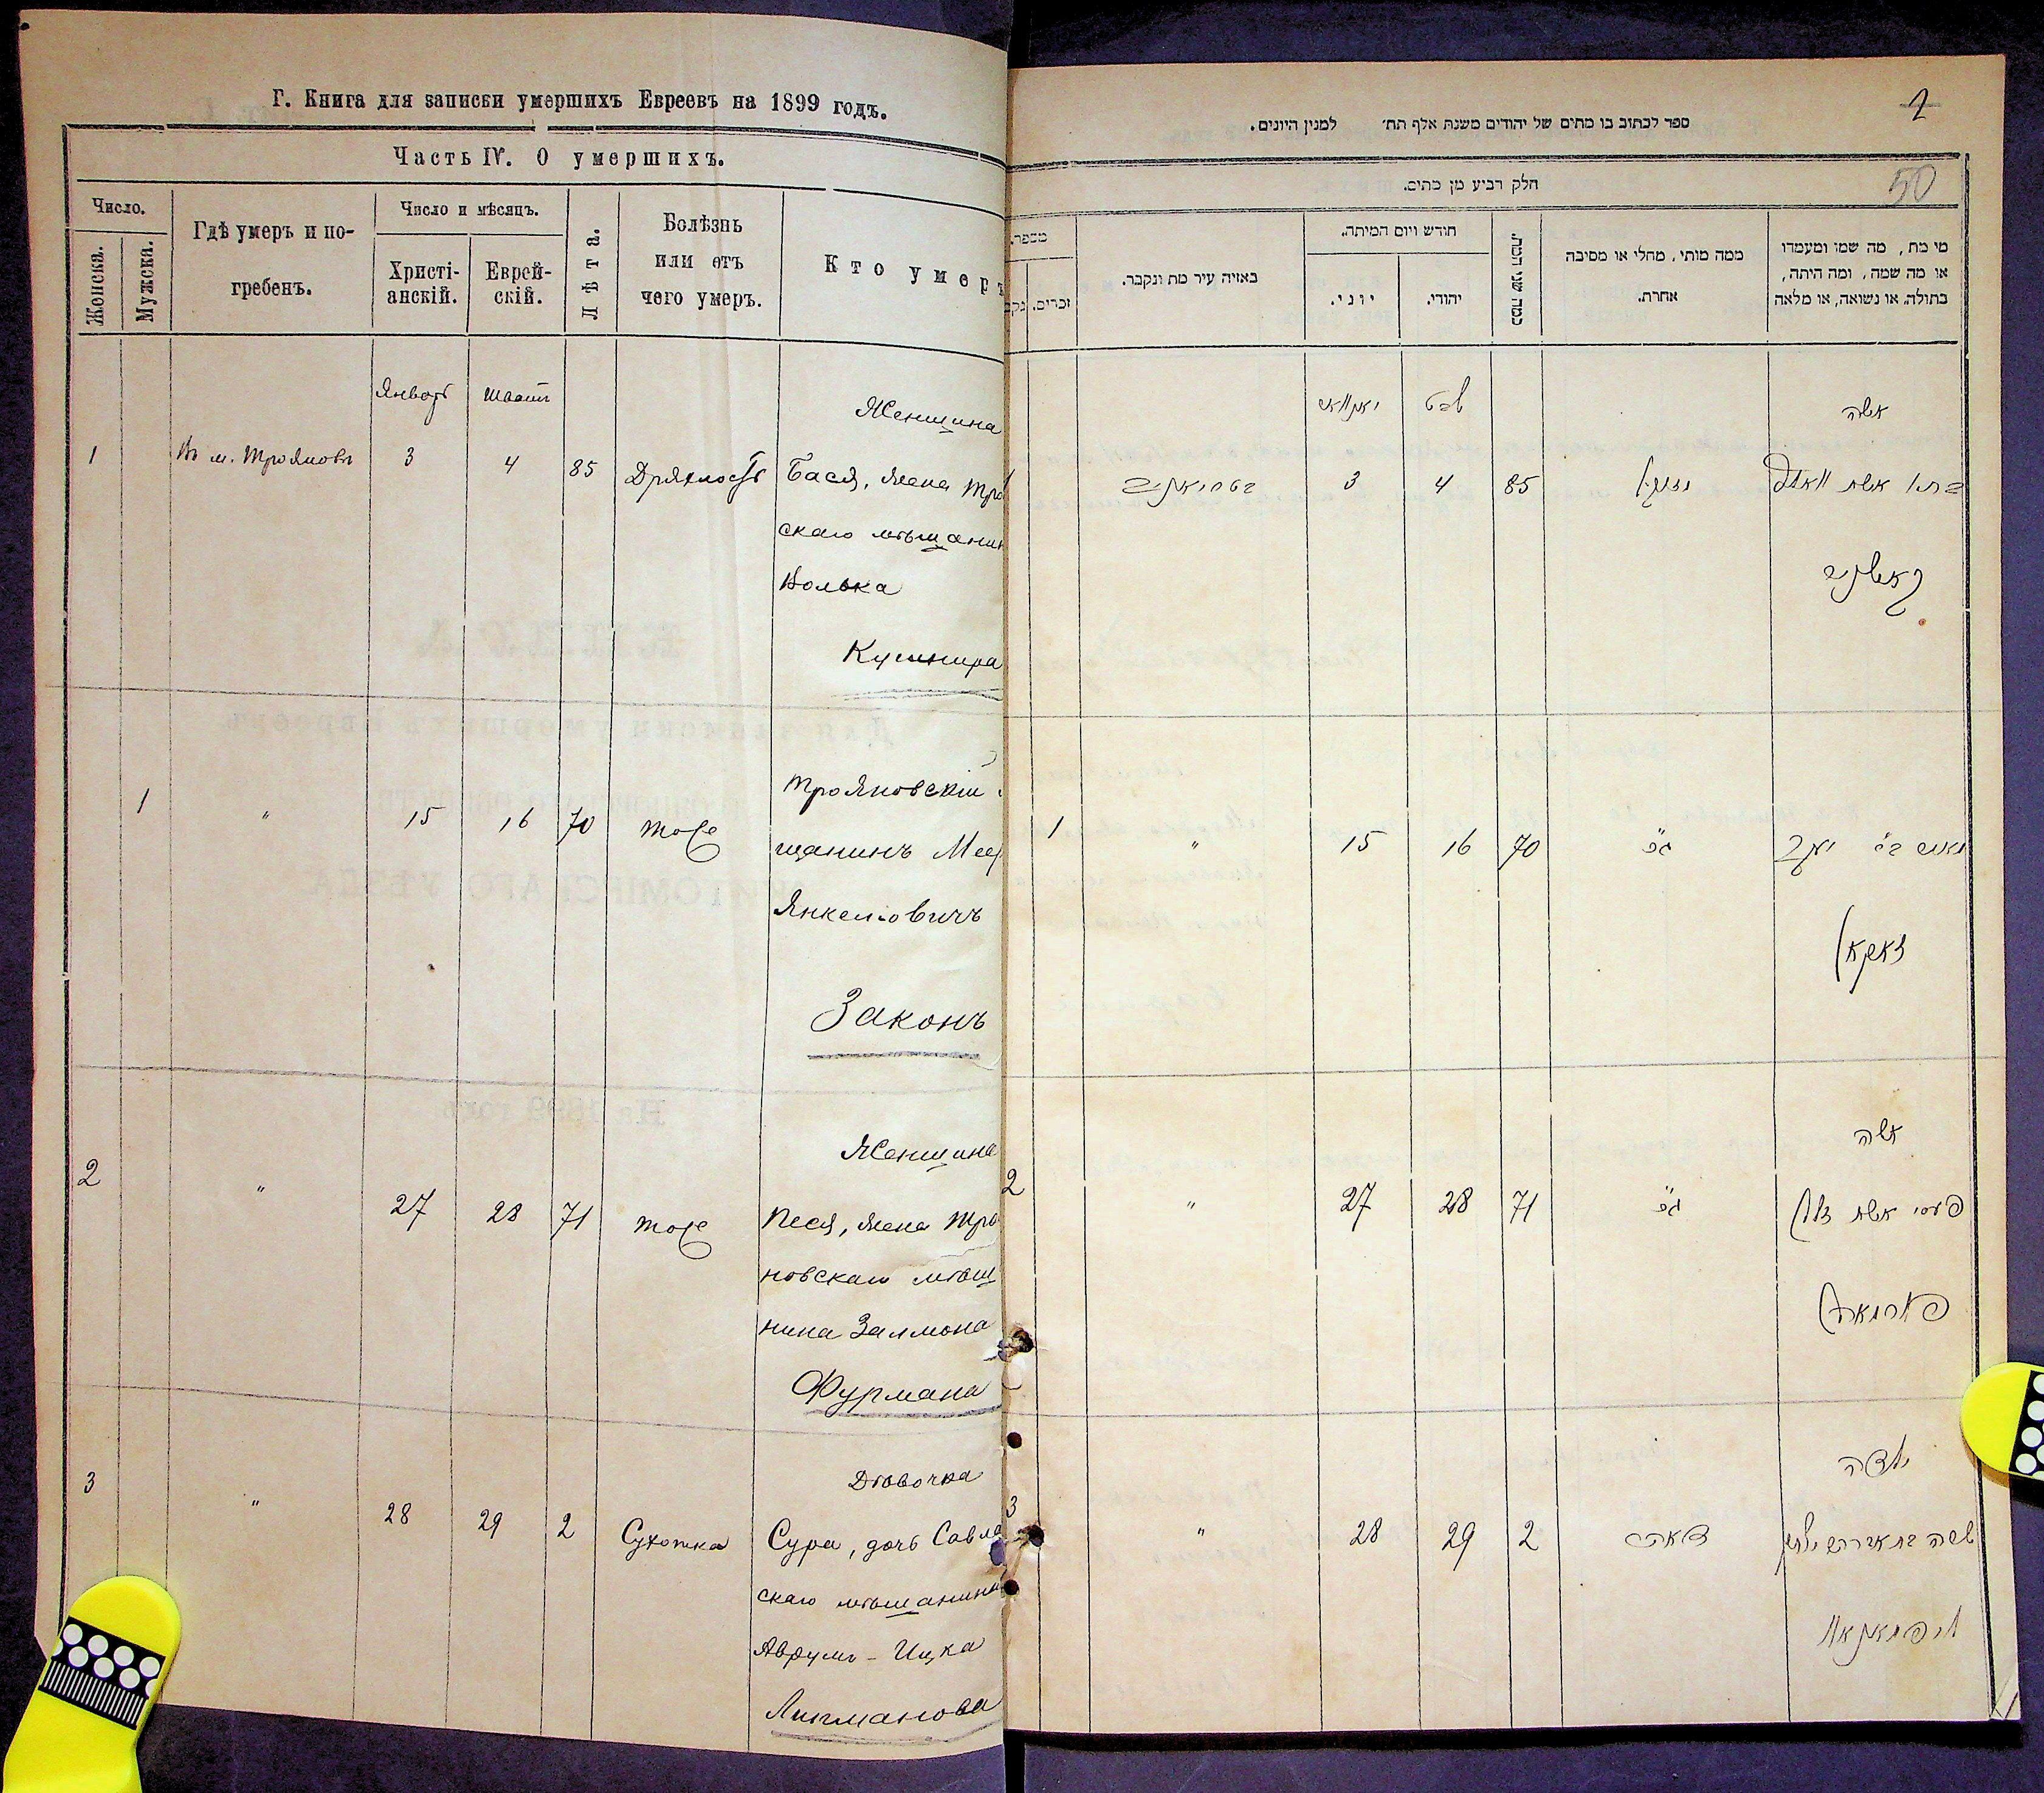 Г. Книга для записки умершихъ Евреевъ на 1899 годъ.
Часть IV. О умершихъ.
Число.
Женска.
Мужска.
Гдѣ умеръ и по-
гребенъ.
Число и мѣсяцъ.
Христі-
анскій.
Еврей-
скій.
Лѣта.
Болѣзнь
или отъ
чего умеръ.
Кто умеръ
Январь Шватъ
Женщина
1 Въ м. Трояновъ 3 4 85 Дряхлость Бася, жена Тро
скаго мѣщанин
Волька
Кушнира
Трояновскій
1 " 15 16 70 тоже щанинъ Меер
Янкелювичъ
Законъ
Женщина
2 " 27 28 71 тоже Песя, жена Тро
новскаго мѣщ
нина Залмона
Фурмана
Дѣвочка
3 " 28 29 2 Сухотка Сура, дочь Савла
скаго мѣщанина
Аврумъ-Ицка
Липманова
2
50
ספר לכתוב בו מתים של יהודים משנת אלף תת׳ למנין היונים.
חלק רביע מן מתים.
מספר.
נקב
זכרים.
באיזה עיר מת ונקבר.
חודש ויום המיתה.
יוני.
יהודי.
כמה שני המת.
ממה מותו, מחלי או מסיבה
אחרת.
מי מת, מה שמו ומעמדו
או מה שמה, ומה היתה,
בתולה, או נשואה, או מלאה
יאנואר שבט
אשה
1 3 4 85 אשת
1 " 15 16 70 יעקב
זאקאן
אשה
2 " 27 28 71 פעסי אשת זלמן
פורמאן
ילדה
3 " 28 29 2
ליפמאנאוו